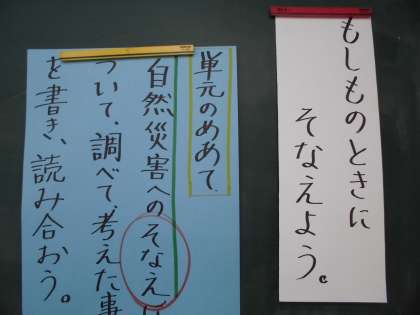 もしものときに
そなえよう。
単元のめあて
自然災害へのそなえに
ついて、調べて、考えた事
を書き、読み合おう。